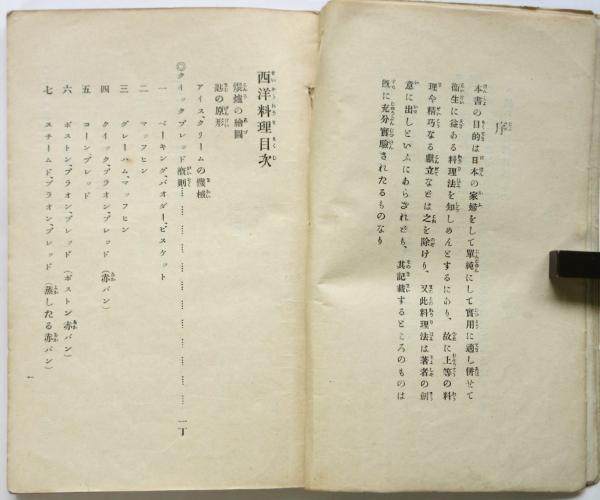 序
本書の目的は日本の家婦をして單純にして實用に適し併せて
衛生に益ある料理法を知しめんとするにあり、故に上等の料
理や精巧なる獻立などは之を除けり、又此料理法は著者の創
意に出しといふにあらざれども、其記載するところのものは
既に充分實驗されたるものなり
西洋料理目次
の繪圖
の原形
アイスクリームの機械
◎クイックブレッド 一丁
一 ベーキング、パオダー、ビスケット
二 マッフヒン
三 グレーハム、マッフヒン
四 クイック、ブラオン、ブレッド (赤パン)
五 コーン、ブレッド
六 ボストン、ブラオン、ブレッド (ボストン赤パン)
七 スチームド、ブラオン、ブレッド (蒸したる赤パン)
一